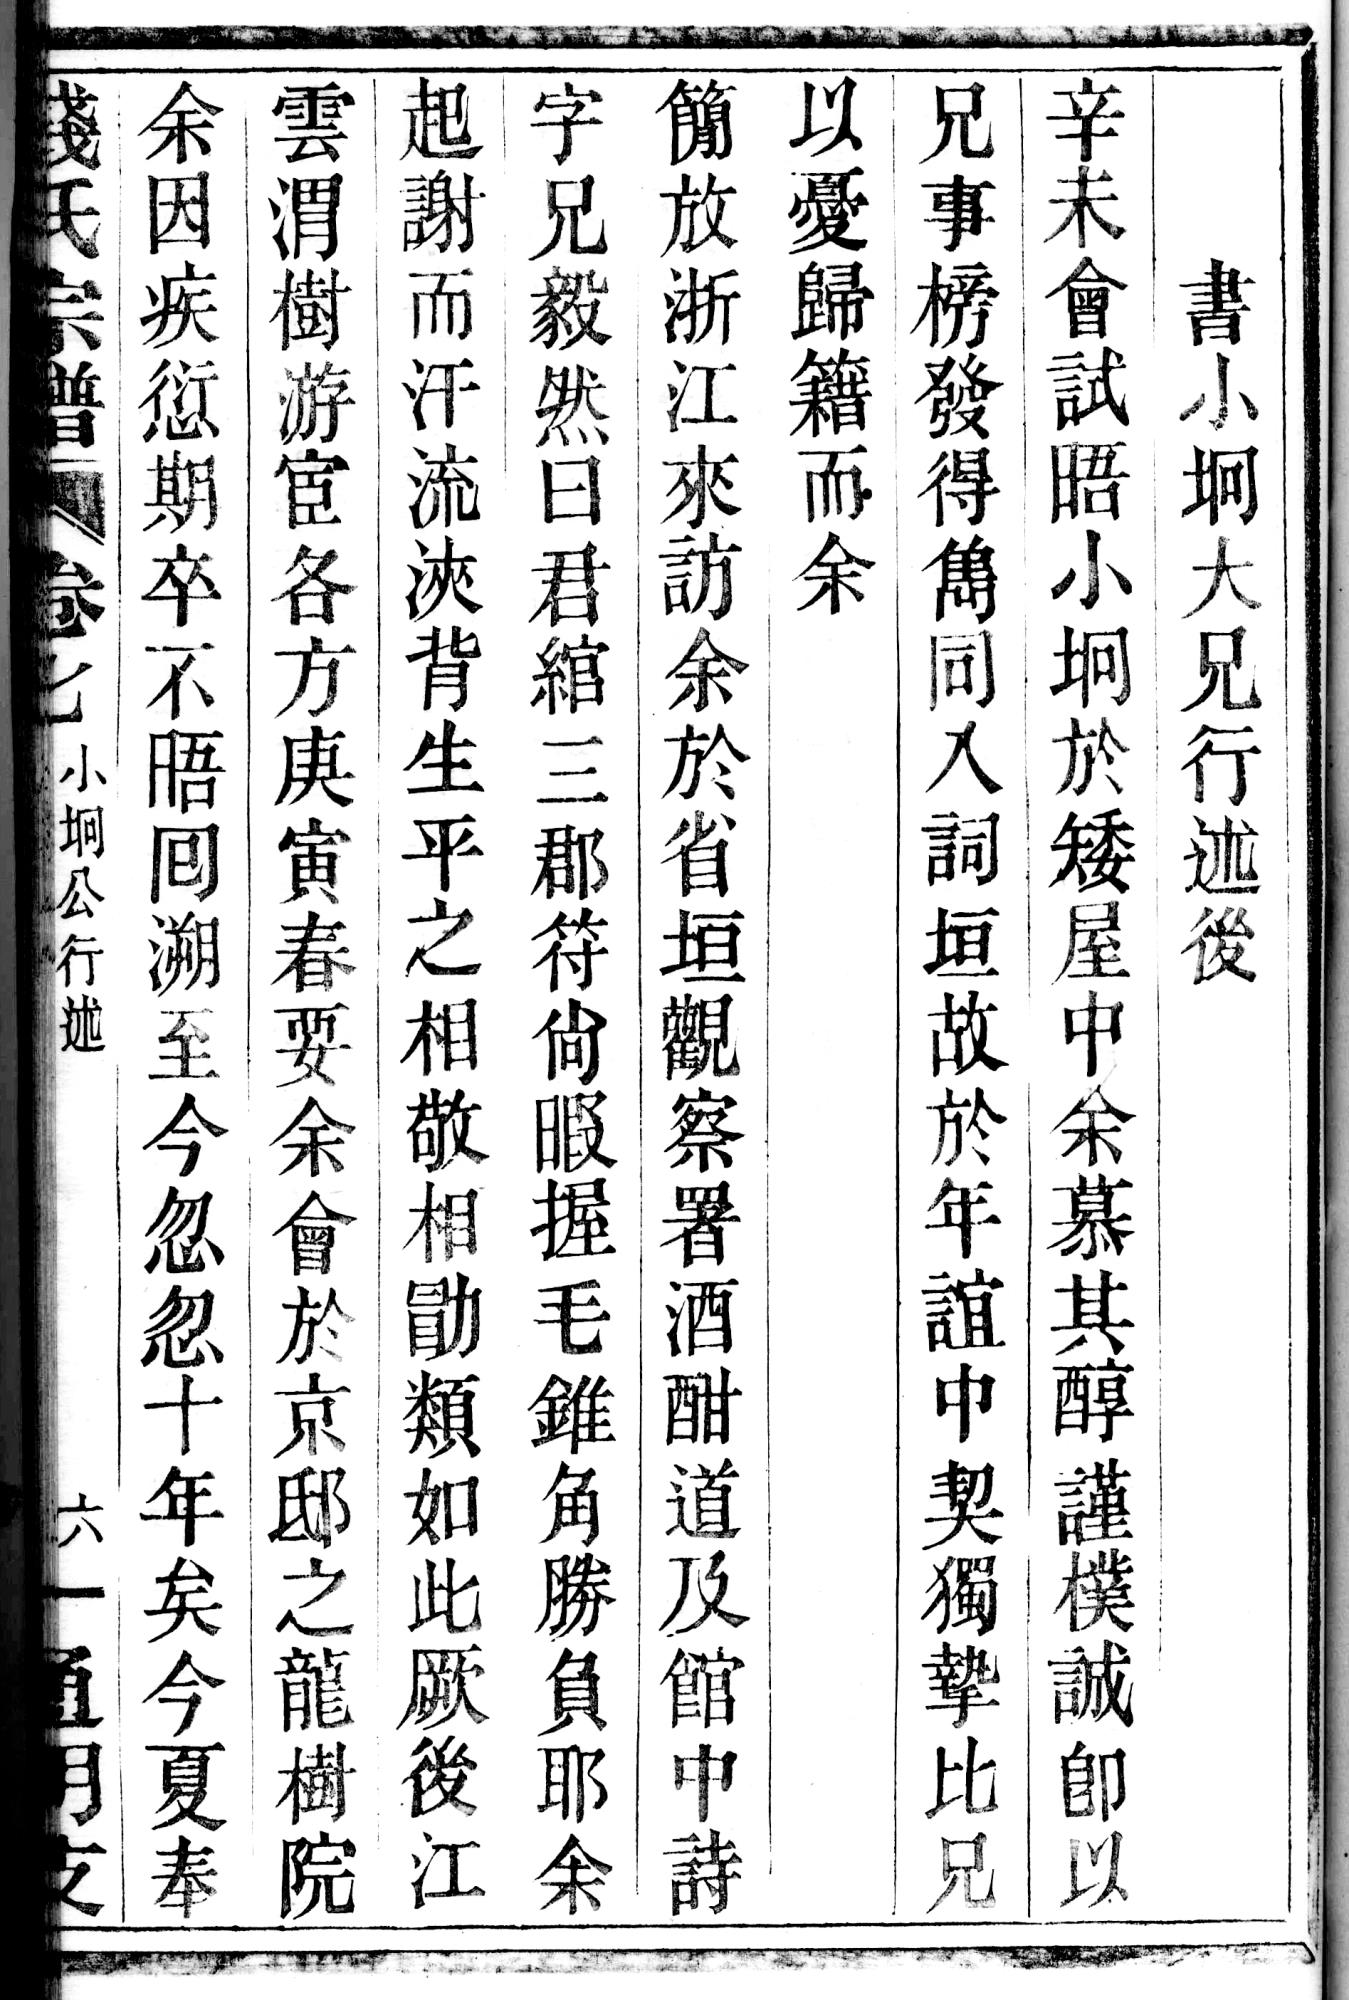 書小坰大兄行述後
辛未會試晤小坰於矮屋中余慕其醇謹樸誠卽以
兄事榜發得雋同入詞垣故於年誼中契獨摯比兄
以憂歸籍而余
簡放浙江來訪余於省垣觀察署酒酣道及館中詩
字兄毅然曰君綰三郡符尙暇握毛錐角勝負耶余
起謝而汗流浹背生平之相敬相勖類如此厥後江
雲渭樹游宦各方庚寅春要余會於京邸之龍樹院
余因疾愆期卒不晤囘溯至今忽忽十年矣今夏奉
錢氏宗譜 卷七 小坰公行述 六一 通明支